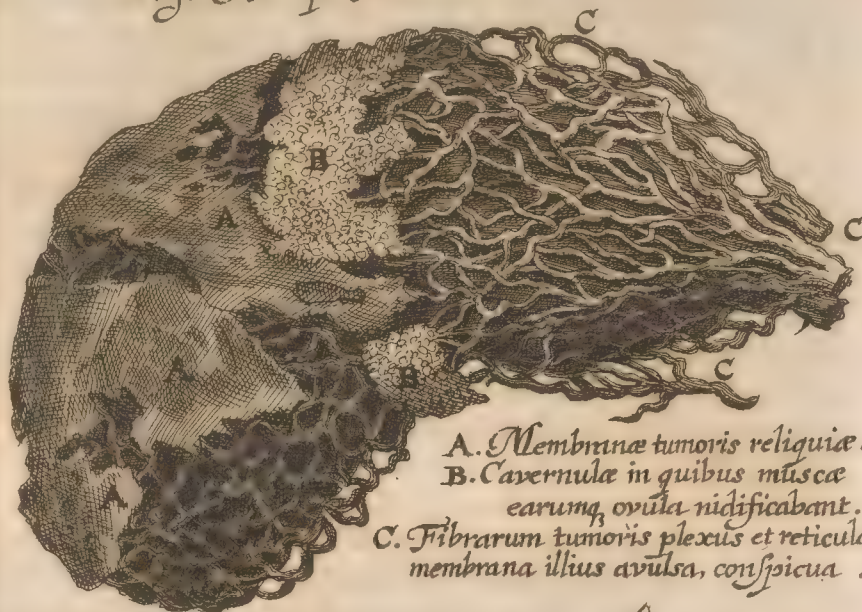 C
B
A
C
A
B
C
A
A. Membranæ tumoris reliquiæ.
B. Cavernulæ in quibus muscæ
earumq; ovula nidificabant.
C. Fibrarum tumoris plexus et reticula
membrana illius avulsa, conſpicua.